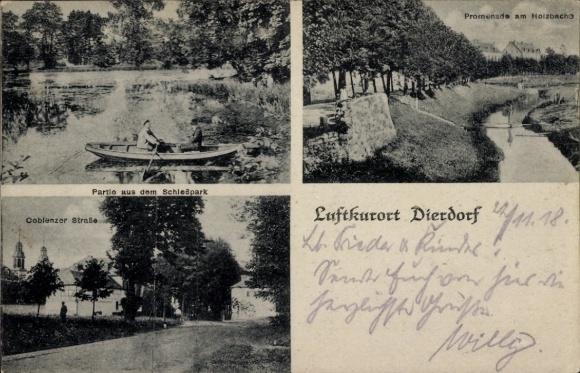 Promenade am Holzbache
Partie aus dem Schleßpark
Coblenzer Straße
Luftkurort Dierdorf
21/11.18.
Lb. Frieda u. Kinder!
Sende Euch von hier die
herzlichste Grüße
Willy.